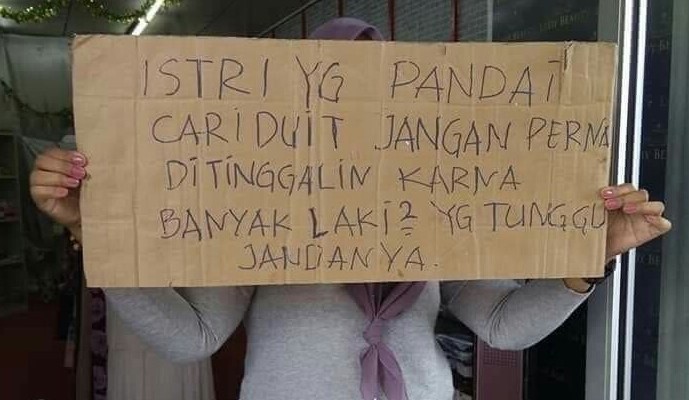 ISTRI YG PANDAI
CARI DUIT JANGAN PERNA
DITINGGALIN KARNA
BANYAK LAKI2 YG TUNGGU
JANDANYA.